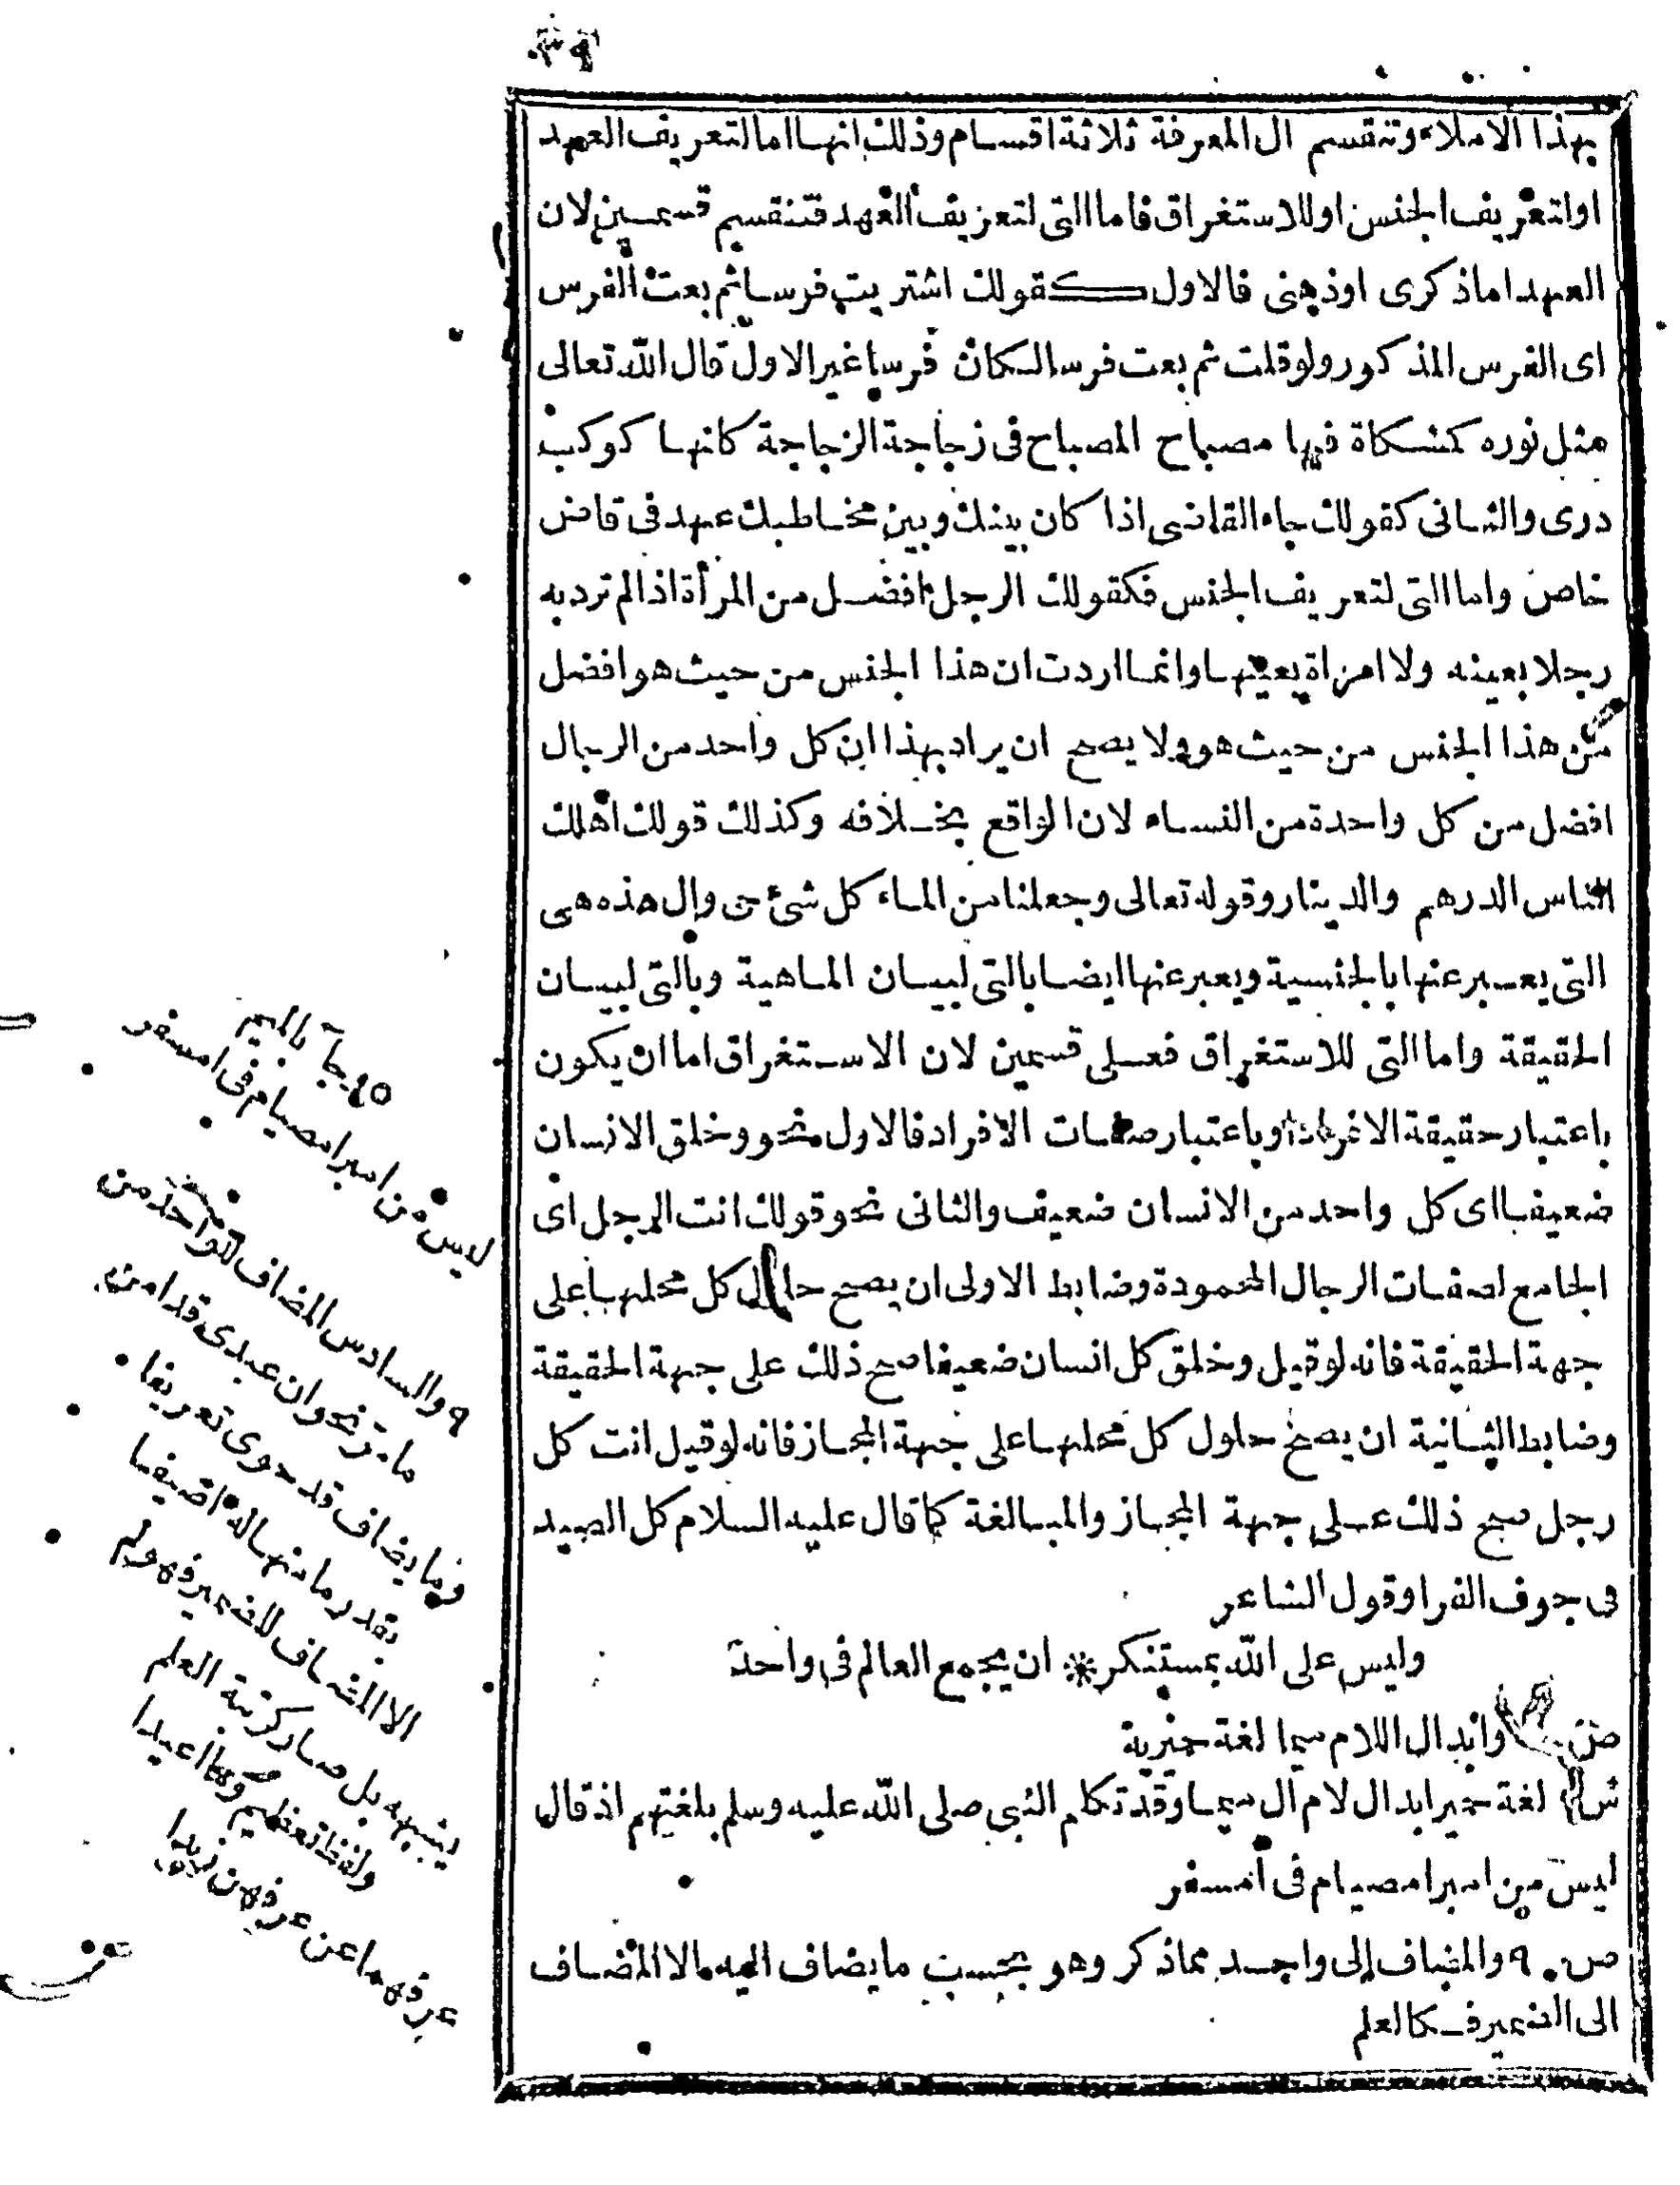 بهذا الاملاء وتنقسم ال المعرفة ثلاثة اقسام وذلك انها اما لتعريف العهد
او لتعريف الجنس او للاستغراق فاما التى لتعريف العهد فتنقسم قسمين لان
العهد اما ذكرى او ذهنى فالاول كقولك اشتريت فرسا ثم بعت الفرس
اى الفرس المذكور ولو قلت ثم بعت فرسا لكان فرسا غير الاول قال الله تعالى
مثل نوره كمشكاة فيها مصباح المصباح فى زجاجة الزجاجة كانها كوكب
درى والثانى كقولك جاء القاضى اذا كان بينك وبين مخاطبك عهد فى قاض
خاص واما التى لتعريف الجنس فكقولك الرجل افضل من المرأة اذا لم ترد به
رجلا بعينه ولا امراة بعينها وانما اردت ان هذا الجنس من حيث هو افضل
من هذا الجنس من حيث هو ولا يصح ان يراد بهذا ان كل واحد من الرجال
افضل من كل واحدة من النساء لان الواقع بخلافه وكذلك قولك اهلك
الناس الدرهم والدينار وقوله تعالى وجعلنا من الماء كل شئ حى وال هذه هى
التى يعبر عنها بالجنسية ويعبر عنها ايضا بالتى لبيان الماهية وبالتى لبيان
الحقيقة واما التى للاستغراق فعلى قسمين لان الاستغراق اما ان يكون
باعتبار حقيقة الافراد او باعتبار صفات الافراد فالاول نحو وخلق الانسان
ضعيفا اى كل واحد من الانسان ضعيف والثانى نحو قولك انت الرجل اى
الجامع لصفات الرجال المحمودة وضابط الاولى ان يصح حلول كل محلها على
جهة الحقيقة فانه لو قيل وخلق كل انسان ضعيفا صح ذلك على جهة الحقيقة
وضابط الثانية ان يصح حلول كل محلها على جهة المجاز فانه لو قيل انت كل
رجل صح ذلك على جهة المجاز والمبالغة كما قال عليه السلام كل الصيد
فى جوف الفرا وقول الشاعر
وليس على الله بمستنكر * ان يجمع العالم فى واحد
ص وابدال اللام ميما لغة حميرية
ش لغة حمير ابدال لام ال ميما وقد تكلم النبى صلى الله عليه وسلم بلغتهم اذ قال
ليس من امبر امصيام فى امسفر
ص ٩ والمضاف الى واحد مما ذكر وهو بحسب ما يضاف اليه الا المضاف
الى الضمير فكالعلم
بالميم
ليس من امبر امصيام فى امسفر
٩ والسادس المضاف للواحد من
ما مر نحو ان عبدى قد امن
وما يضاف قد حوى تعريفا
بقدر ما منها له اضيفا
الا المضاف للضمير فهو لم
يشبهه بل صار كرتبة العلم